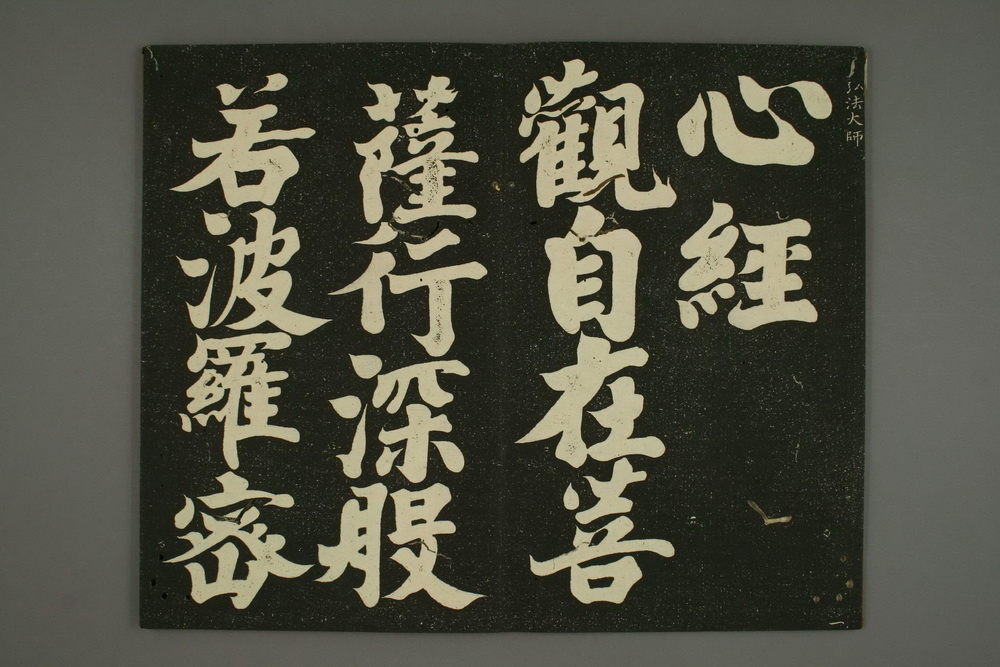 弘法大師
心經
觀自在菩
薩行深般
若波羅蜜
一